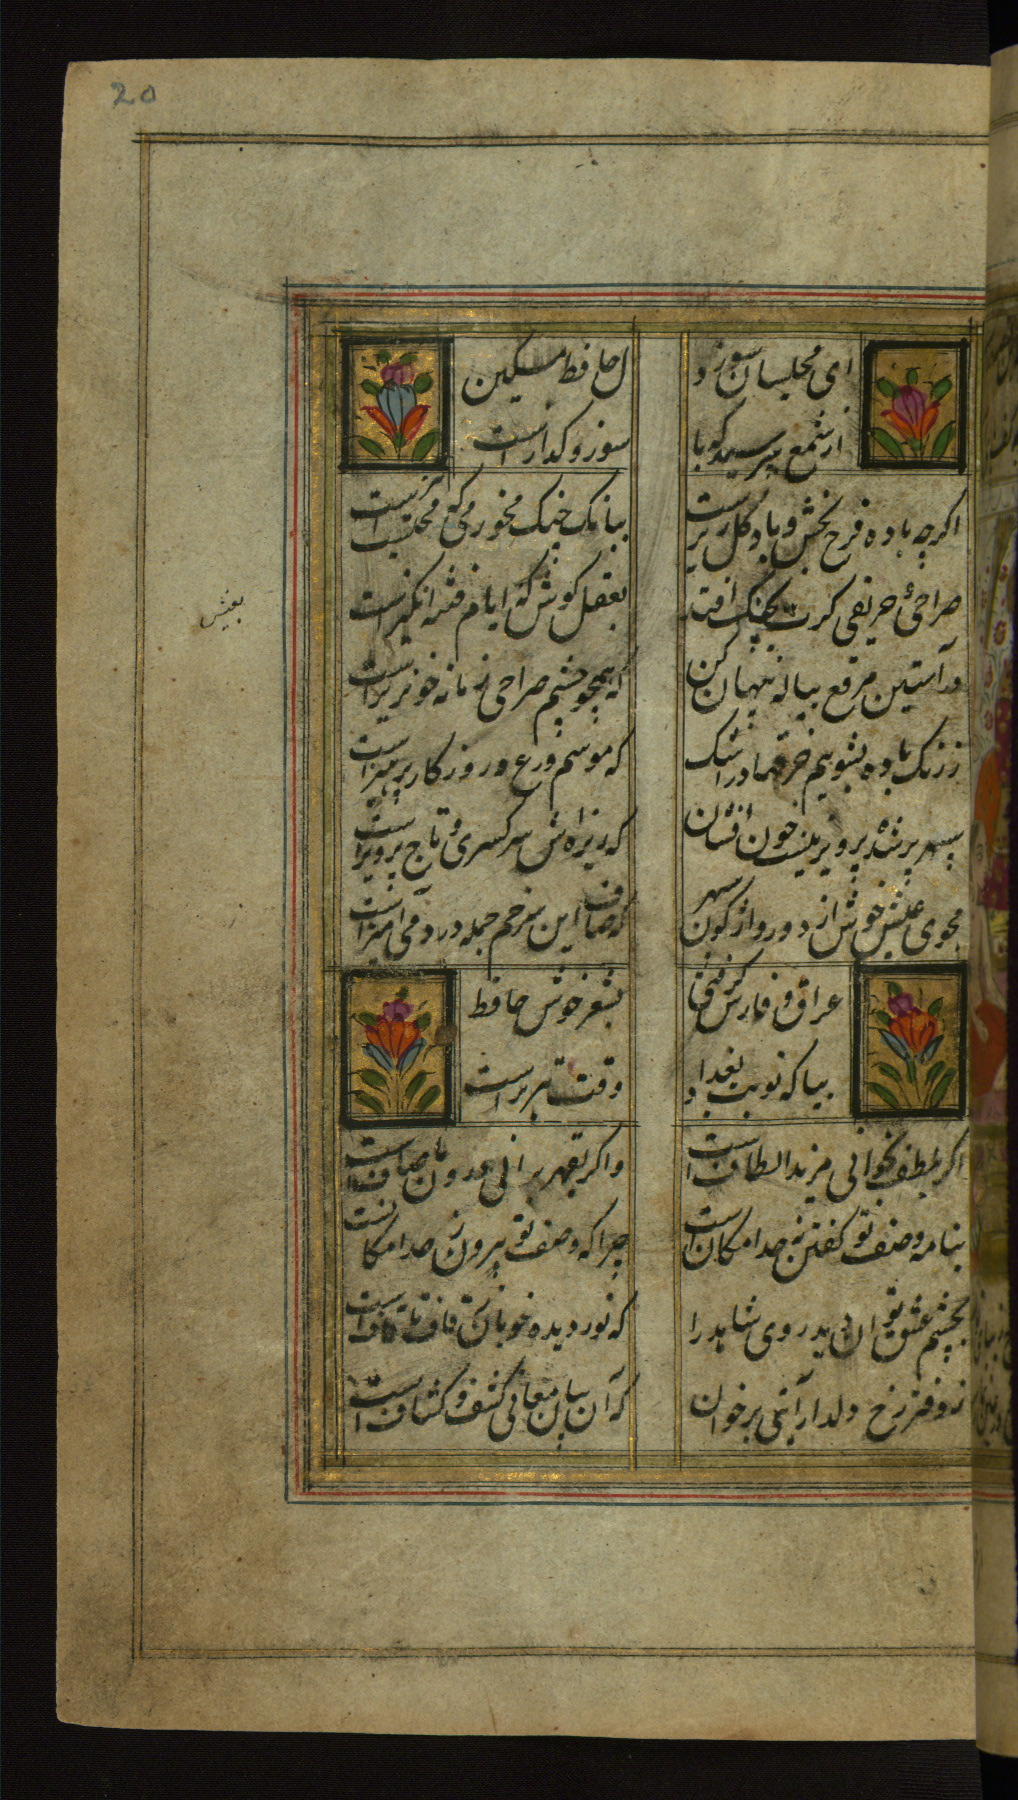 20
ای مجلسیان سوز د
ل حافظ مسکین
از شمع بپرسید کو با
سوز و کداز است
اگرچه باده فرح بخش و باد گل‌ریز است
ببانک چنک مخور می که محتسب تیز است
صراحئ و حریفی گرت بچنک افتد
بعقل کوش که ایام فتنه انکیز است
در آستین مرقع پیاله پنهان کن
که همچو چشم صراحی زمانه خونریز است
ز رنک باده بشویم خرقها در اشک
که موسم ورع و روزکار پرهیز است
سپهر بر شده پرویزنیست خون افشان
که ریزه اش سر کسری و تاج پرویز است
مجوی عیش خوش از دور واژکون سپهر
که صاف این سر خم جمله دردی آمیز است
عراق و فارس گرفتی
بشعر خوش حافظ
بیا که نوبت بغداد و
وقت تبریز است
اگر بلطف بخوانی مزید الطاف است
و اگر بقهر برانی درون ما صاف است
بنامه وصف تو گفتن نه حد امکان است
چرا که وصف تو بیرون ز حد امکانست
بچشم عشق توان دید روی شاهد را
که نور دیده خوبان ز قاف تا قاف است
ز دفتر رخ دلدار آیتی برخوان
که آن بیان معانی کشف و کشاف است